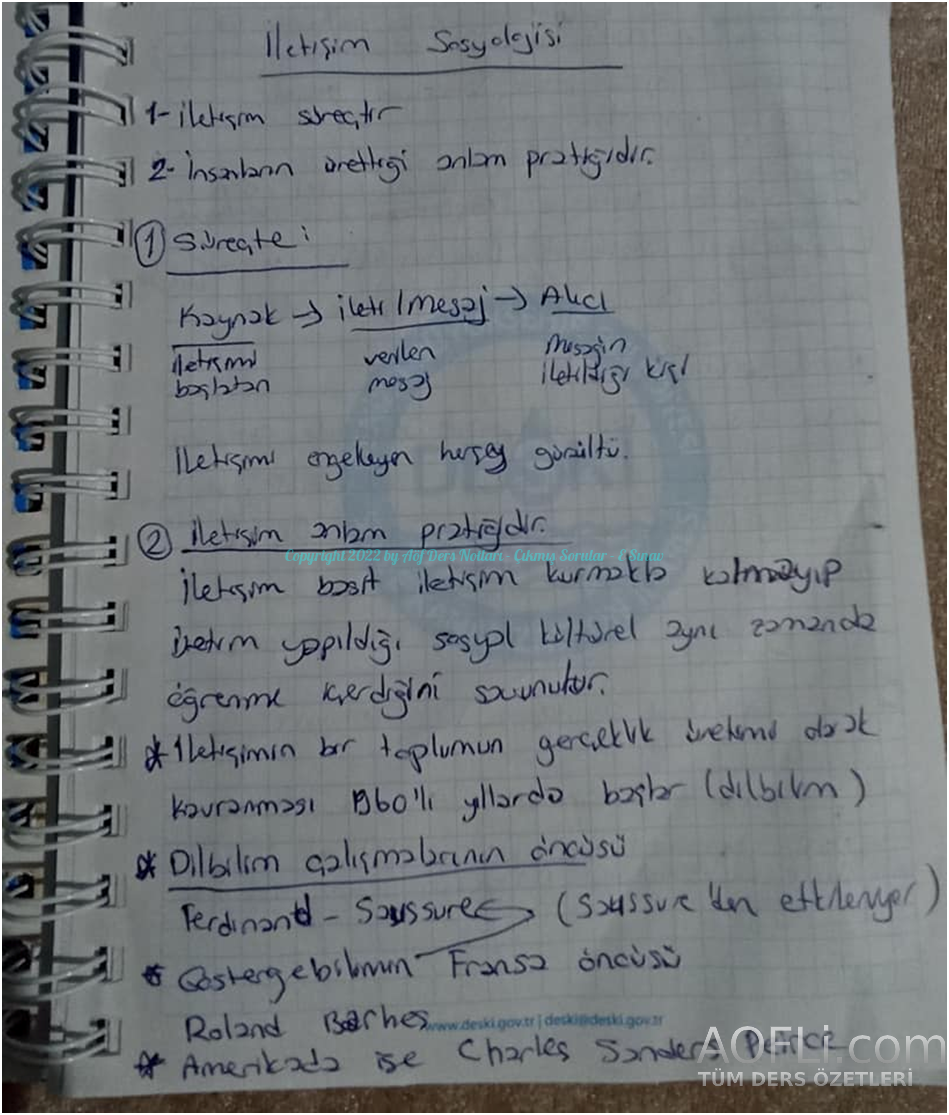 İletişim Sosyolojisi
1- iletişim süreçtir
2- İnsanların ürettiği anlam pratiğidir.
① Süreçte :
Kaynak → ileti/mesaj → Alıcı
iletişimi verilen mesajın
başlatan mesaj iletildiği kişi
İletişimi engelleyen herşey gürültü.
② iletişim anlam pratiğidir.
Copyright 2022 by Aöf Ders Notları - Çıkmış Sorular - E Sınav
İletişim basit iletişim kurmakla kalmayıp
üretim yapıldığı sosyal kültürel aynı zamanda
öğrenme içerdiğini savunulur.
* İletişimin bir toplumun gerçeklik üretimi olarak
kavranması 1960'lı yıllarda başlar (dilbilim)
* Dilbilim çalışmalarının öncüsü
Ferdinand - Saussure (Saussure'den etkileniyor)
* Göstergebilimin Fransa öncüsü
Roland Barhes
www.deski.gov.tr | deski@deski.gov.tr
* Amerikada ise Charles Sanders Peirce
DESKİ
AOFLi.com
TÜM DERS ÖZETLERİ